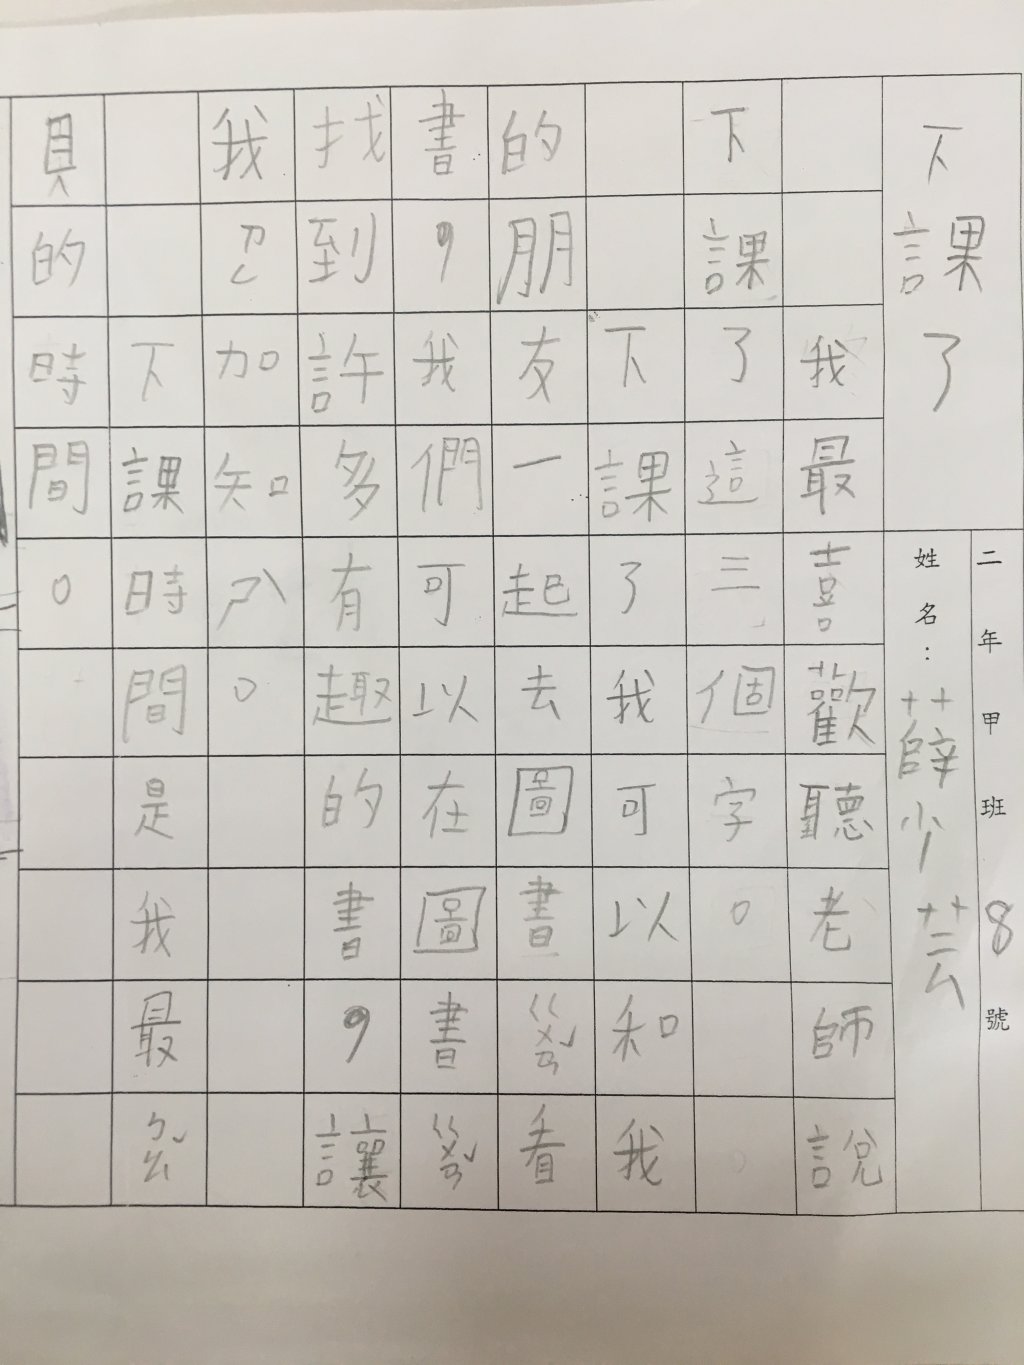 下課了
二年甲班8號
姓名：薛少芸
我最喜歡聽老師說
下課了這三個字。
下課了我可以和我
的朋友一起去圖書ㄍㄨㄢˇ看
書，我們可以在圖書ㄍㄨㄢˇ
找到許多有趣的書，讓
我ㄗㄥ加知ㄕˋ。
下課時間是我最ㄅㄠˇ
貝的時間。